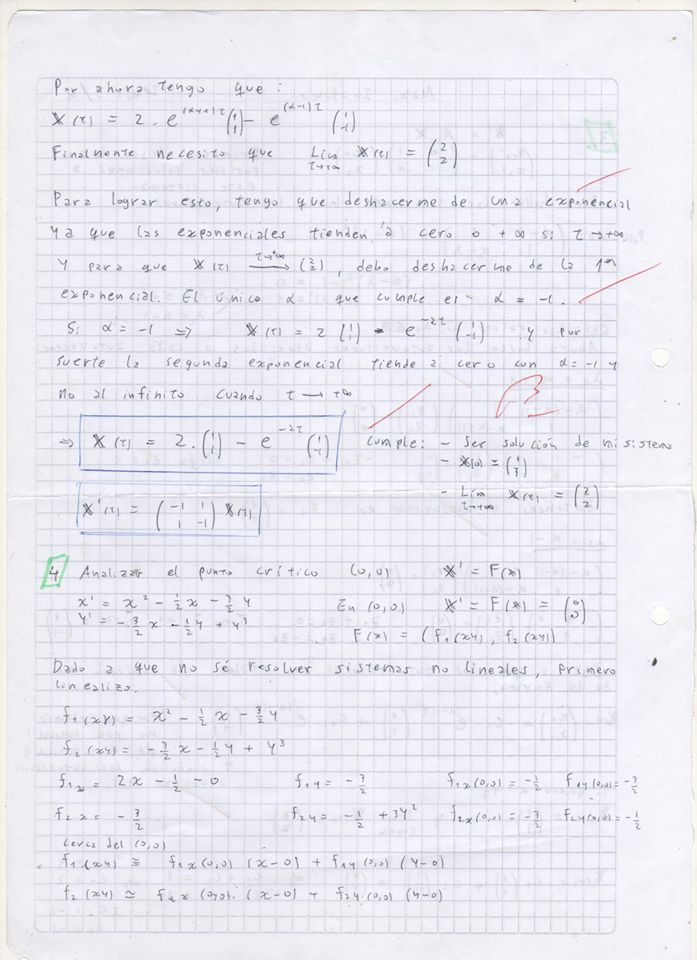 Por ahora tengo que:
X(t) = 2. e^(α+1)t (1 1) - e^(α-1)t (1 -1)
Finalmente necesito que Lim t→+∞ X(t) = (2 2)
Para lograr esto, tengo que deshacerme de una exponencial
ya que las exponenciales tienden a cero o +∞ si t→+∞
Y para que X(t) t→+∞ → (2 2), debo deshacerme de la 1ª
exponencial. El único α que cumple es α = -1.
Si α = -1 ⇒ X(t) = 2 (1 1) - e^-2t (1 -1) y por
suerte la segunda exponencial tiende a cero con α = -1 y
no al infinito cuando t → +∞
⇒ X(t) = 2. (1 1) - e^-2t (1 -1) Cumple: - Ser solución de mi sistema
- X(0) = (1 3)
- Lim t→+∞ X(t) = (2 2)
X'(t) = (-1 1 1 -1) X(t)
4 Analizar el punto crítico (0,0) X' = F(X)
x' = x² - 1/2 x - 3/2 y En (0,0) X' = F(X) = (0 0)
y' = -3/2 x - 1/2 y + y³ F(X) = (f1(xy), f2(xy))
Dado a que no sé resolver sistemas no lineales, primero
linealizo.
f1(xy) = x² - 1/2 x - 3/2 y
f2(xy) = -3/2 x - 1/2 y + y³
f1x = 2x - 1/2 - 0 f1y = -3/2 f1x(0,0) = -1/2 f1y(0,0) = -3/2
f2x = -3/2 f2y = -1/2 + 3y² f2x(0,0) = -3/2 f2y(0,0) = -1/2
cerca del (0,0)
f1(xy) ≅ f1x(0,0) (x-0) + f1y(0,0) (y-0)
f2(xy) ≃ f2x(0,0). (x-0) + f2y(0,0) (y-0)